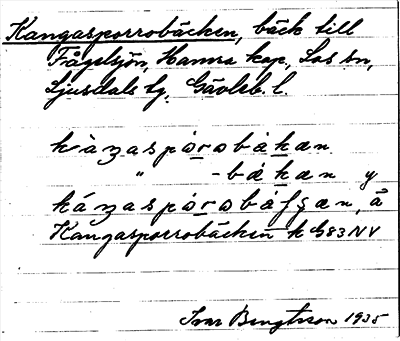 Kangasporrobäcken, bäck till
Fågelsjön, Hamra kap., Los sn,
Ljusdals tg. Gävleb. l.
kàŋaspòrobàkan
" -bàkan y
káŋaspòrobáfʂan, å
Kangasporrobäcken k G83NV
Ivar Bengtsson 1935